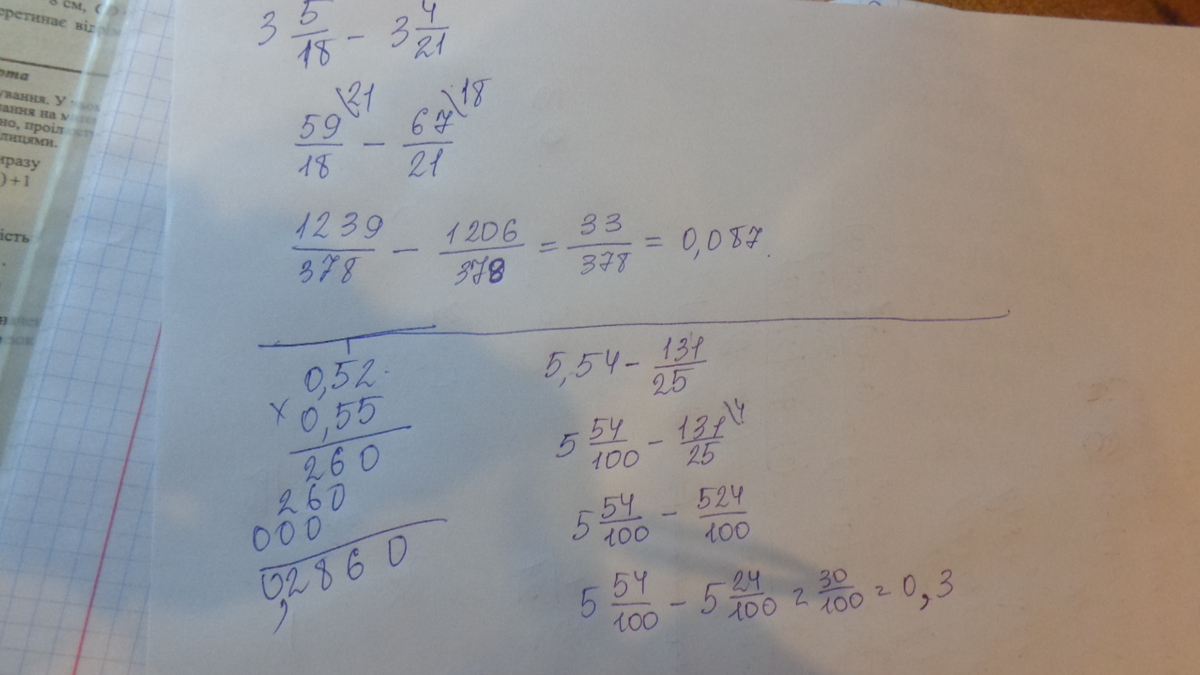 8 см,
еретинає відрі
ота
ування. У
ання на м
но, проіл
лицями.
иразу
) + 1
ість
3 5/18 - 3 4/21
59/18 \21 - 67/21 \18
1239/378 - 1206/378 = 33/378 = 0,087.
0,52
× 0,55
260
260
000
0,2860
5,54 - 131/25
5 54/100 - 131/25 \4
5 54/100 - 524/100
5 54/100 - 5 24/100 = 30/100 = 0,3